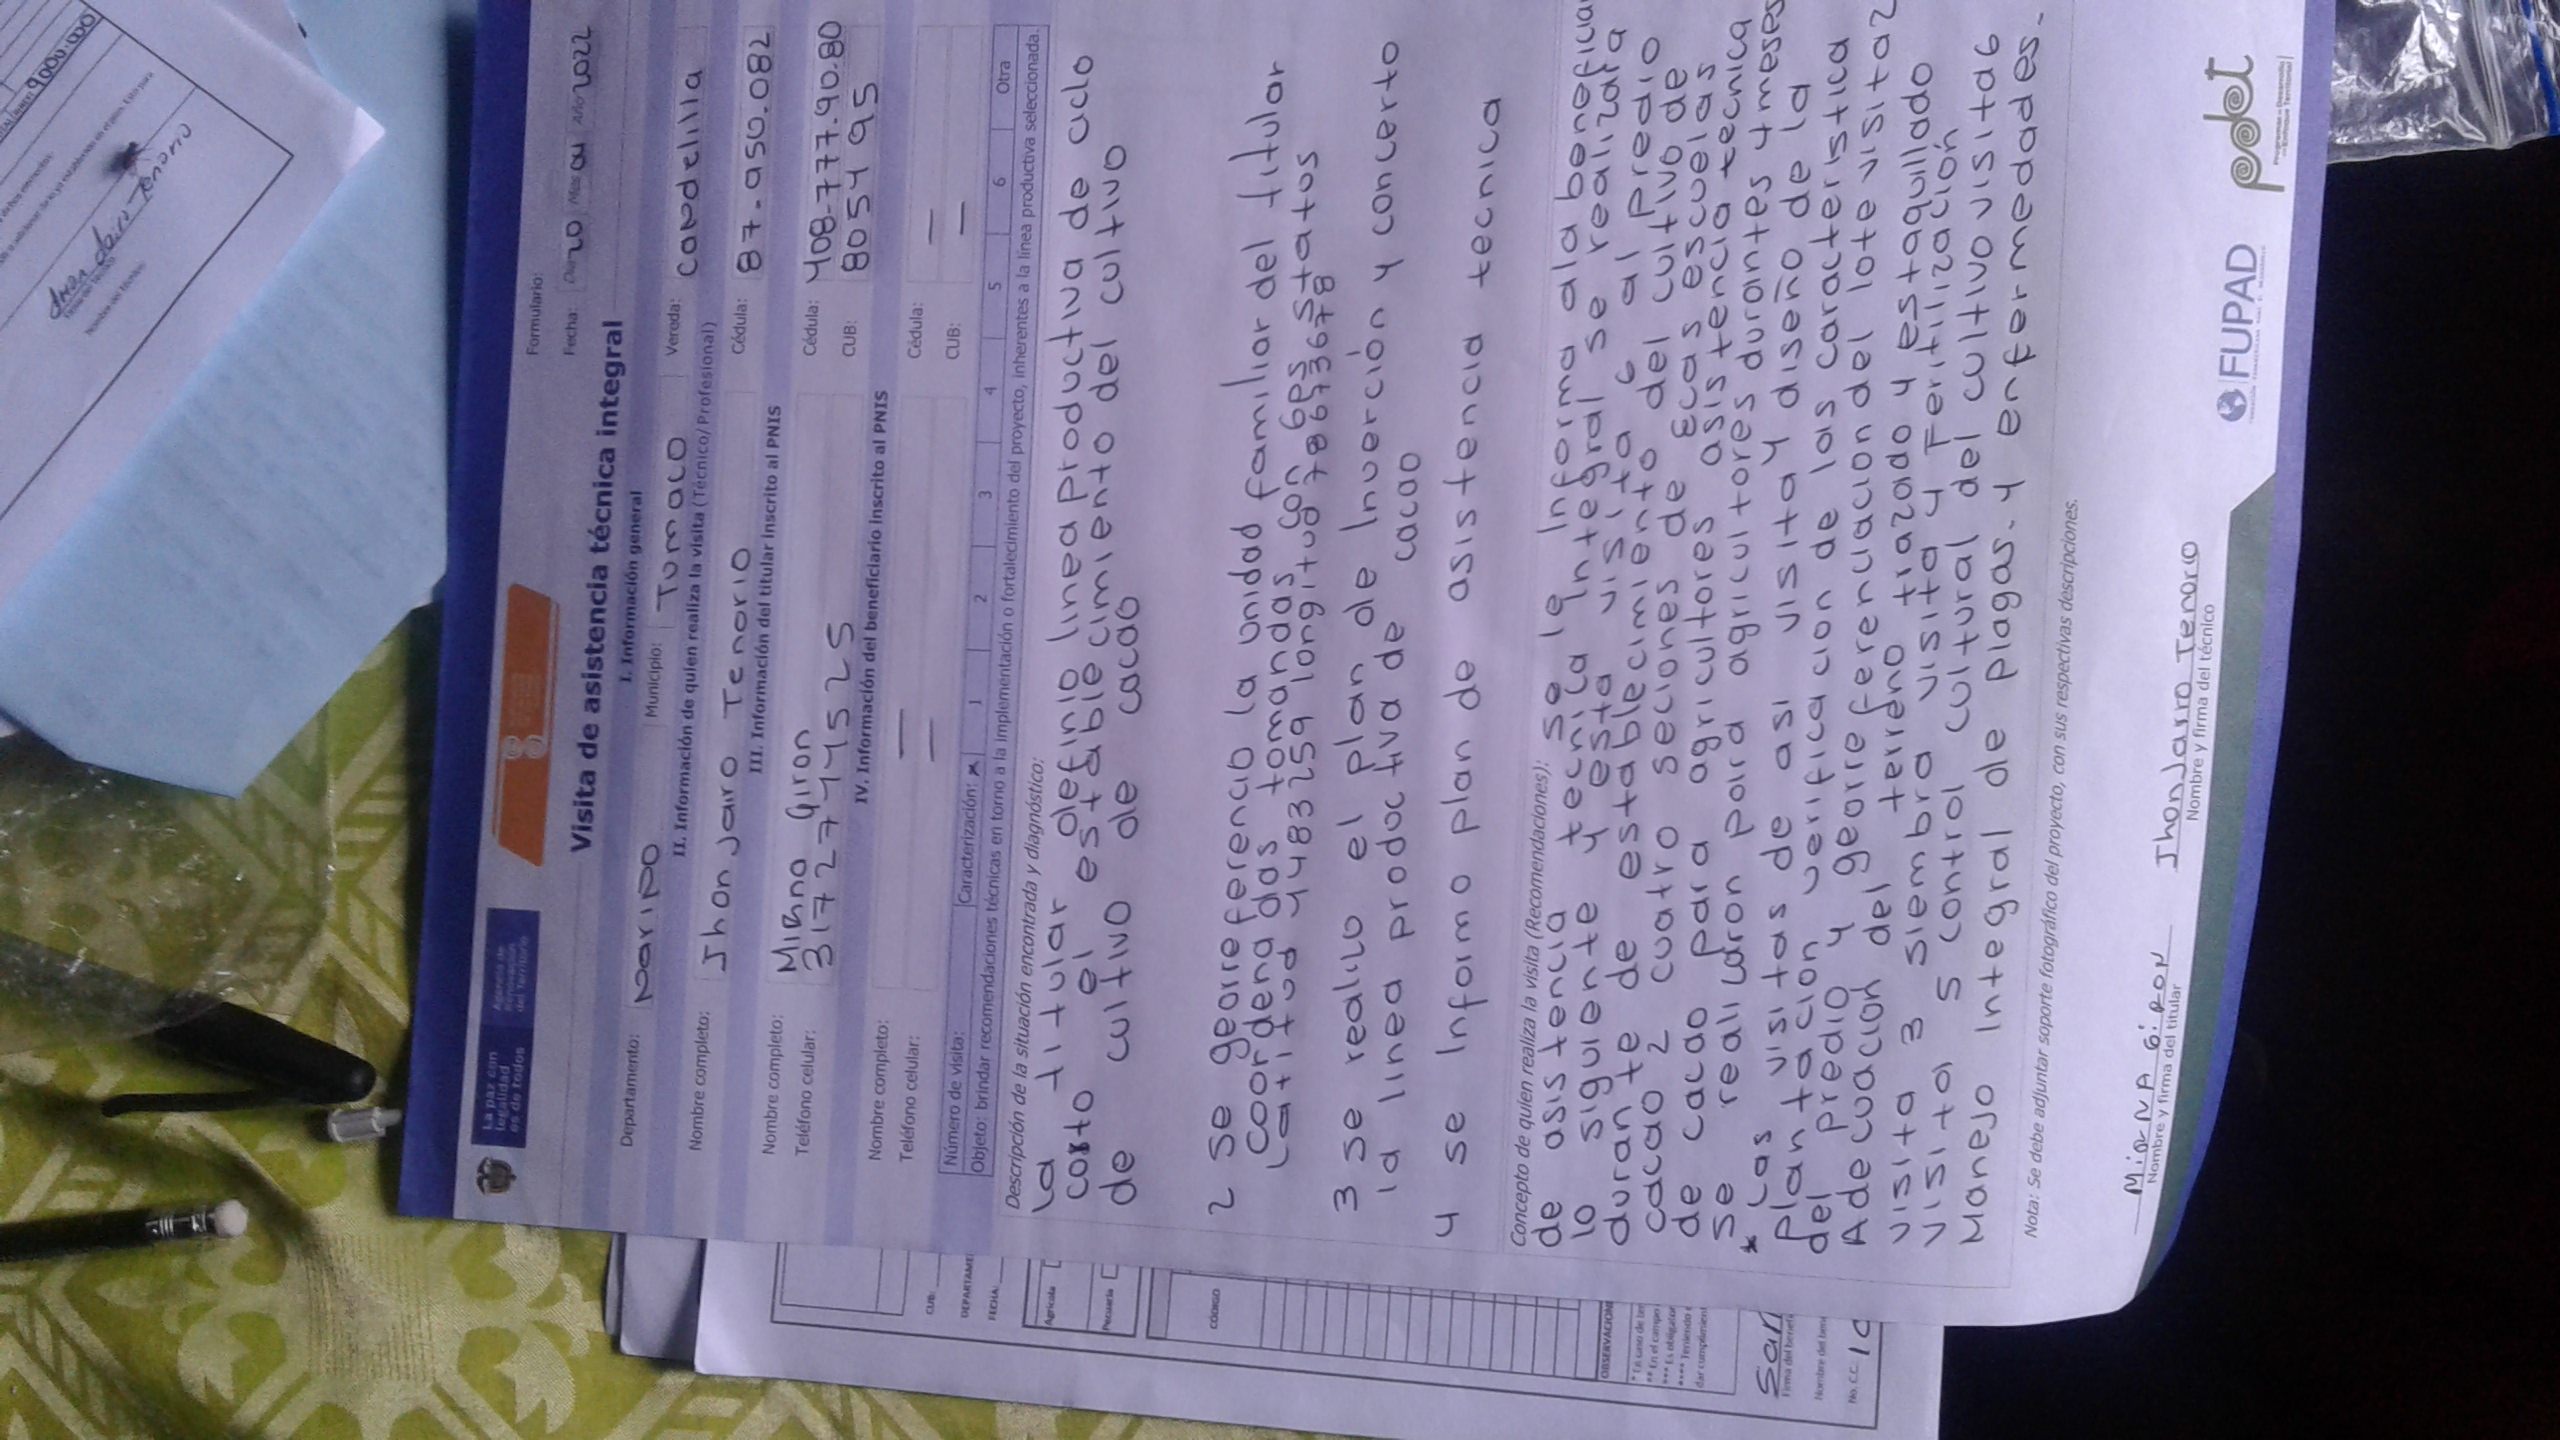 La paz con
legalidad
es de todos
Agencia de
Renovación
del Territorio
Formulario:
Visita de asistencia técnica integral
Fecha: Día 20 Mes 01 Año 2022
I. Información general
Departamento: Nariño Municipio: Tumaco Vereda: Candelilla
II. Información de quien realiza la visita (Técnico/Profesional)
Nombre completo: Jhon Jairo Tenorio Cédula: 87.950.082
III. Información del titular inscrito al PNIS
Nombre completo: Mirna Giron Cédula: 408-777.90.80
Teléfono celular: 3172744525 CUB: 805495
IV. Información del beneficiario inscrito al PNIS
Nombre completo: — Cédula: —
Teléfono celular: — CUB: —
Número de visita: Caracterización: x 1 2 3 4 5 6 Otra
Objeto: brindar recomendaciones técnicas en torno a la implementación o fortalecimiento del proyecto, inherentes a la línea productiva seleccionada.
Descripción de la situación encontrada y diagnóstico:
La titular definio linea productiva de ciclo
corto el establecimiento del cultivo
de cultivo de cacao
2 se georreferencio la unidad familiar del titular
coordenadas tomandas con Gps statos
Latitud 4483259 longitud 786736778
3 se realico el plan de Inverción y concerto
la linea productiva de cacao
4 se Informo plan de asistencia tecnica
Concepto de quien realiza la visita (Recomendaciones): se le Informa ala beneficiar
de asistencia tecnica Integral se realizara
lo siguiente y esta visita 6 al predio
durante de establecimiento del cultivo de
cacao 2 cuatro seciones de Ecas escuelas
de cacao para agricultores asistencia tecnica
se realicaron para agricultores durantes 4 meses
* Las visitas de asi visita y diseño de la
plantacion verificacion de las caracteristica
del predio y georreferenciacion del lote visita 2
Adecuacion del terreno trazado y estaquillado
visita 3 siembra visita 4 Fertilización
visita 5 control cultural del cultivo visita 6
Manejo Integral de plagas. y enfermedades.
Nota: Se debe adjuntar soporte fotográfico del proyecto, con sus respectivas descripciones.
MirNA GiroN
Nombre y firma del titular
Jhon Jairo Tenorio
Nombre y firma del técnico
FUPAD
pdet
Programas de Desarrollo
con Enfoque Territorial
9.000.000
Jhon Jairo Tenorio
Nombre del técnico
CUB:
FECHA:
Agrícola
Pecuaria
CÓDIGO
No. C.C.